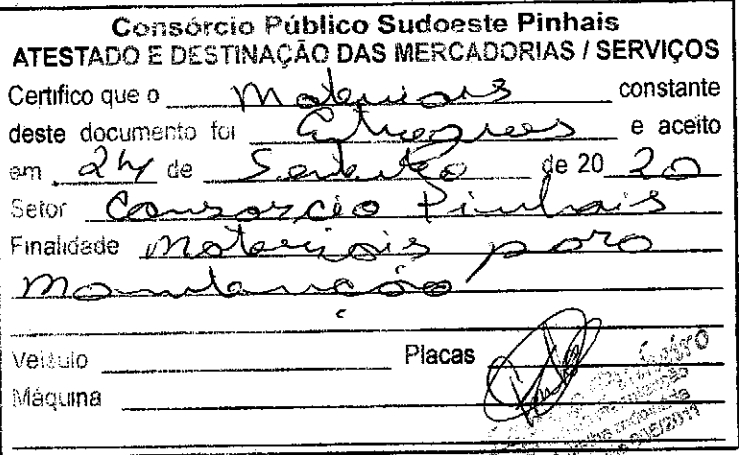 Consórcio Público Sudoeste Pinhais
ATESTADO E DESTINAÇÃO DAS MERCADORIAS / SERVIÇOS
Certifico que o Materiais constante
deste documento foi Entregues e aceito
em 24 de Setembro de 20 20
Setor Consorcio Pinhais
Finalidade Materiais para
Manutenção
Veículo Placas
Máquina